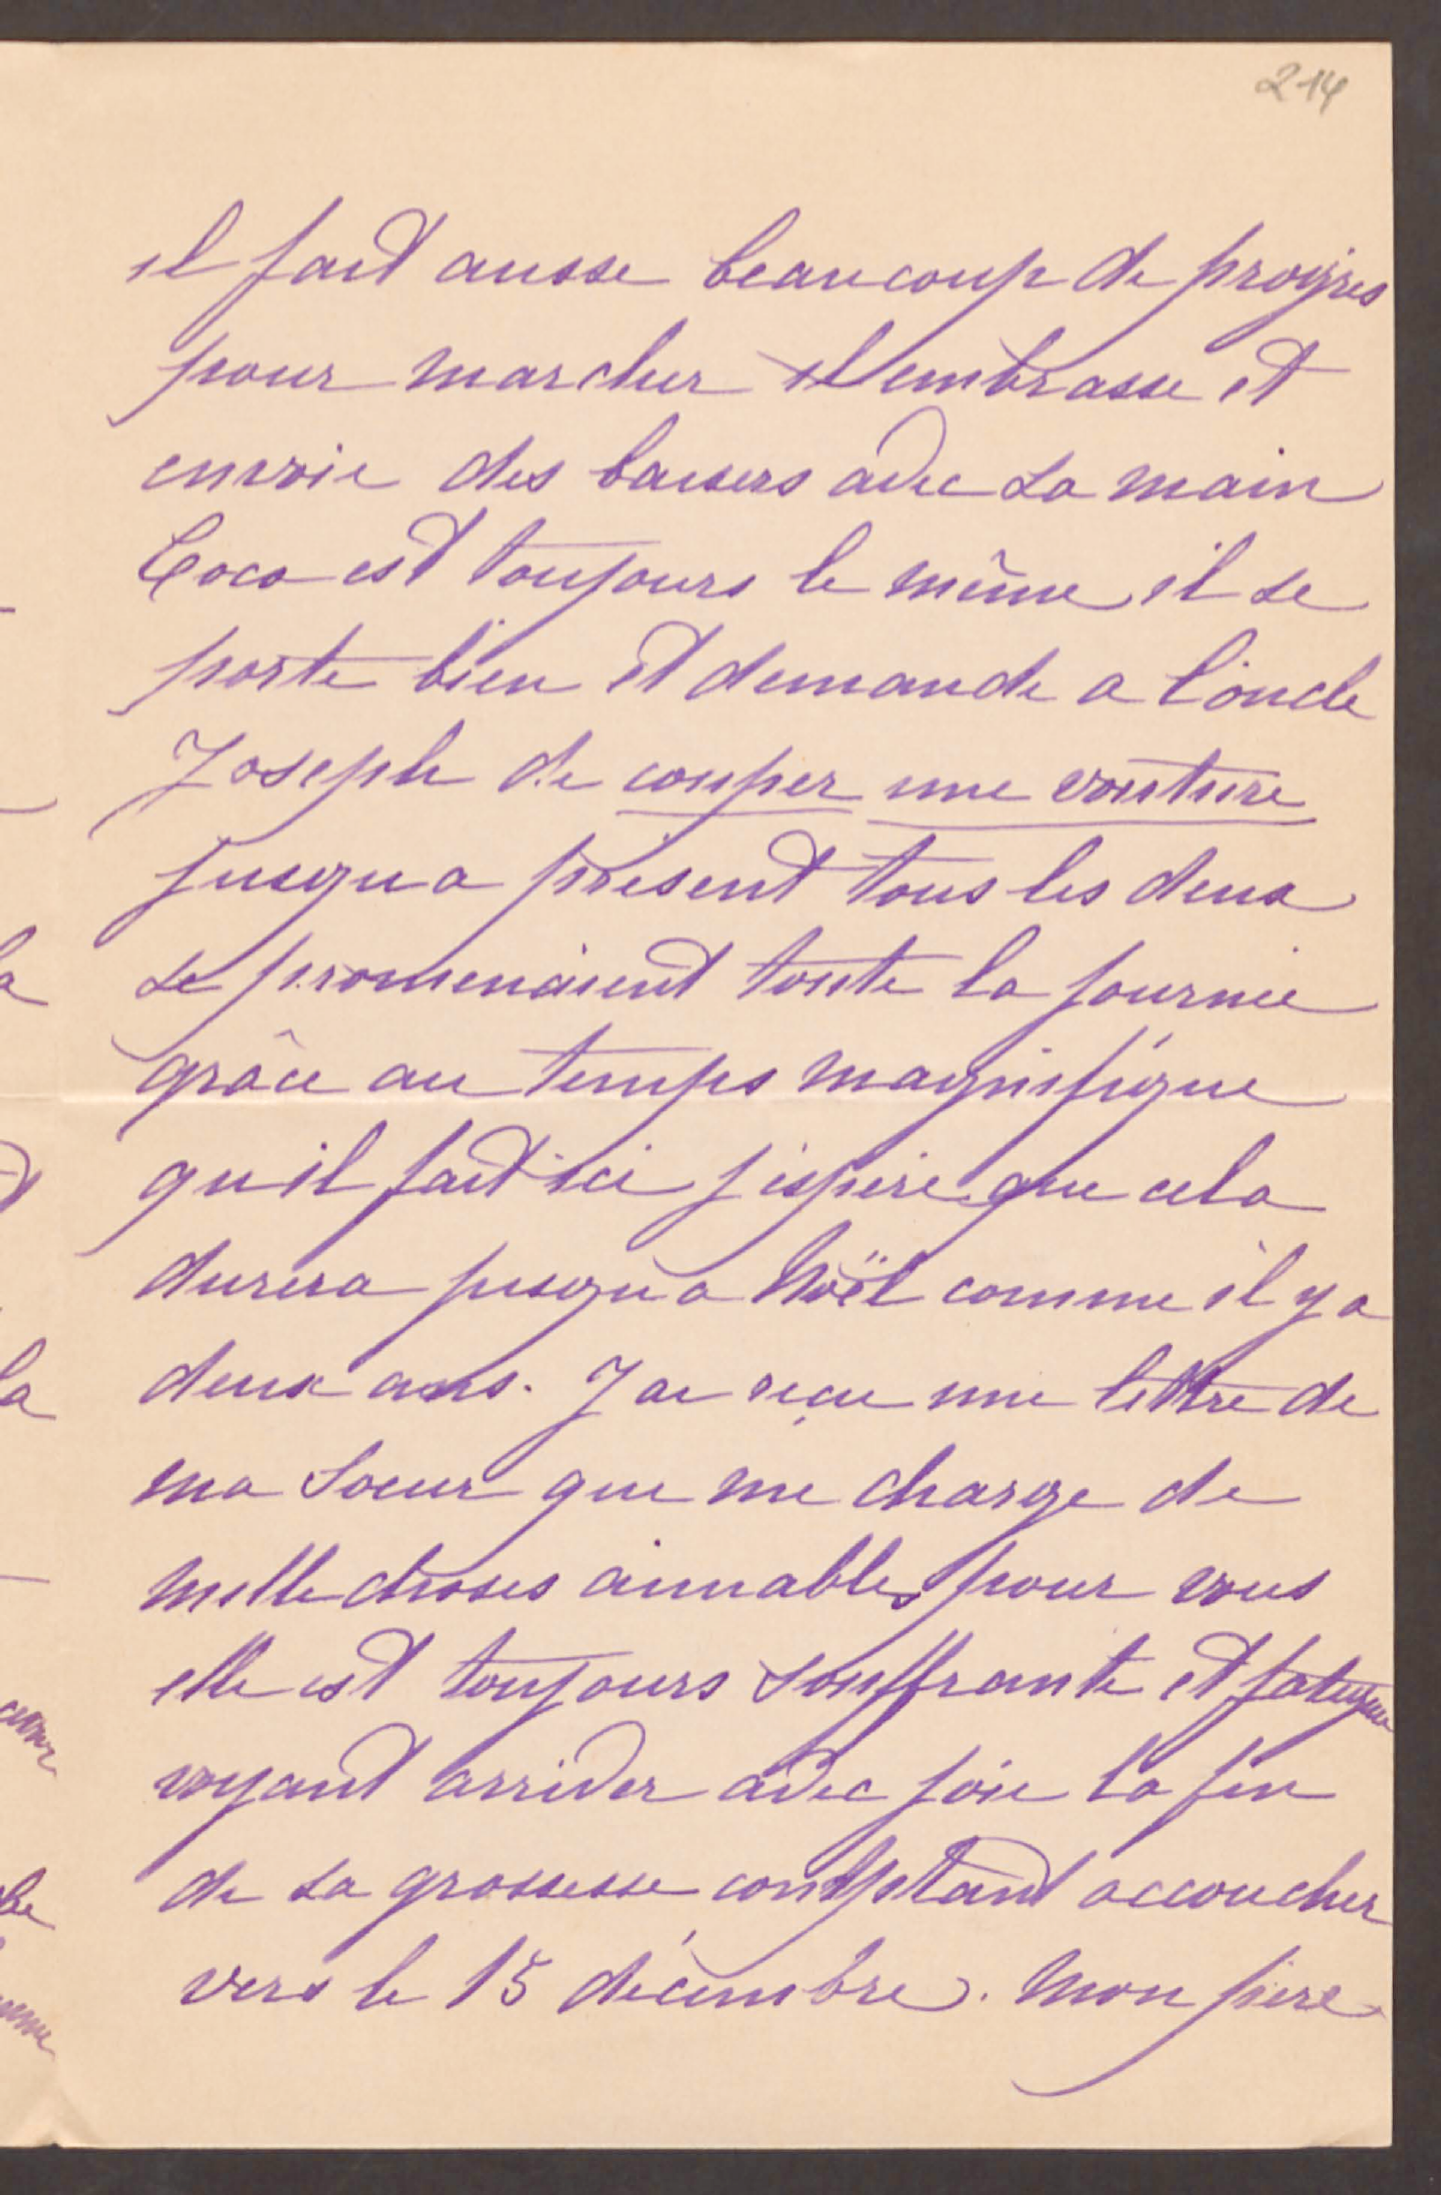 214
il fait aussi beaucoup de progrès
pour marcher il embrasse et
envoie des baisers avec sa main
Coco est toujours le même il se
porte bien et demande a l'oncle
Joseph de couper une vouture
jusqu'a présent tous les deux
se promenaient toute la journée
grâce au temps magnifique
qu'il fait ici j'espère que cela
durera jusqu'a Noël comme il y a
deux ans. J'ai reçu une lettre de
ma Soeur qui me charge de
mille choses aimables pour vous
elle est toujours souffrante et fatiguée
voyant arriver avec joie la fin
de sa grossesse comptant accoucher
vers le 15 décembre. Mon père